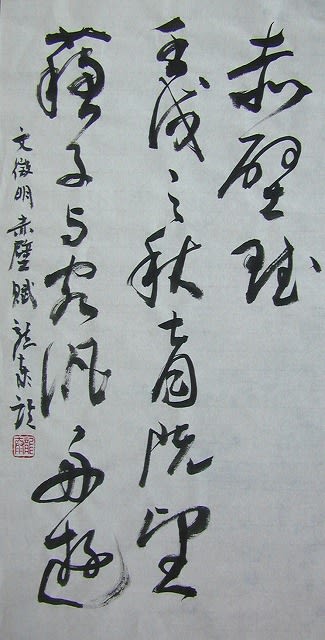 赤壁賦
壬戌之秋七月既望
蘇子与客泛舟遊
文徵明赤壁賦